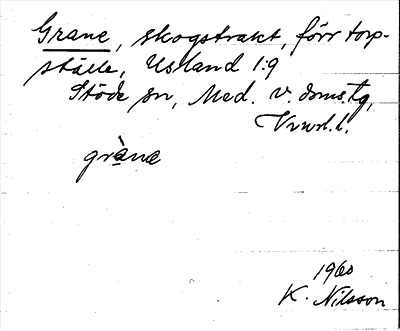 Grane, skogstrakt, förr torp-
ställe, Usland 1:9
Stöde sn, Med. v. doms.tg,
Vnrl.l.
gràne
1960
K. Nilsson